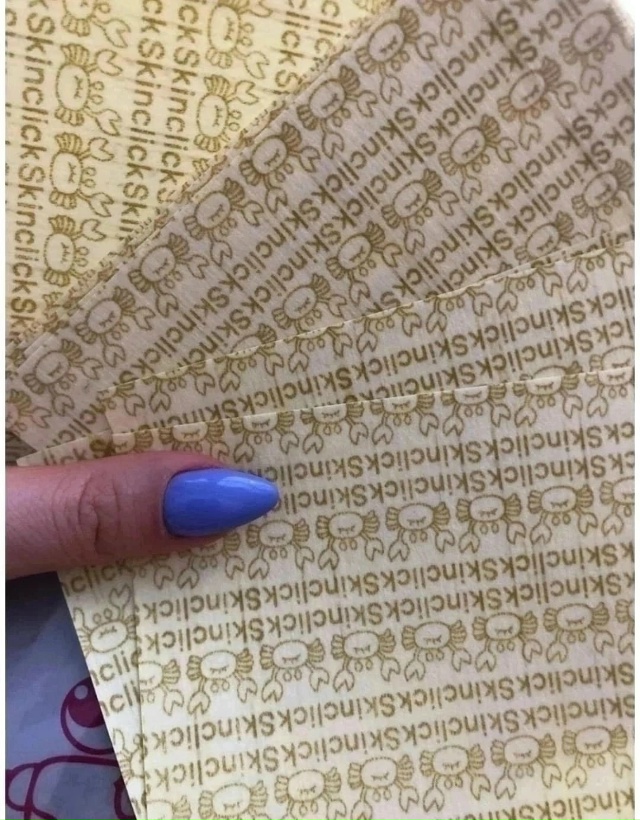 SkinclickSkinclickSkinclick
SkinclickSkinclickSkinclick
SkinclickSkinclickSkinclick
SkinclickSkinclickSkinclick
SkinclickSkinclickSkinclick
SkinclickSkinclickSkinclick
SkinclickSkinclickSkinclick
SkinclickSkinclickSkinclick